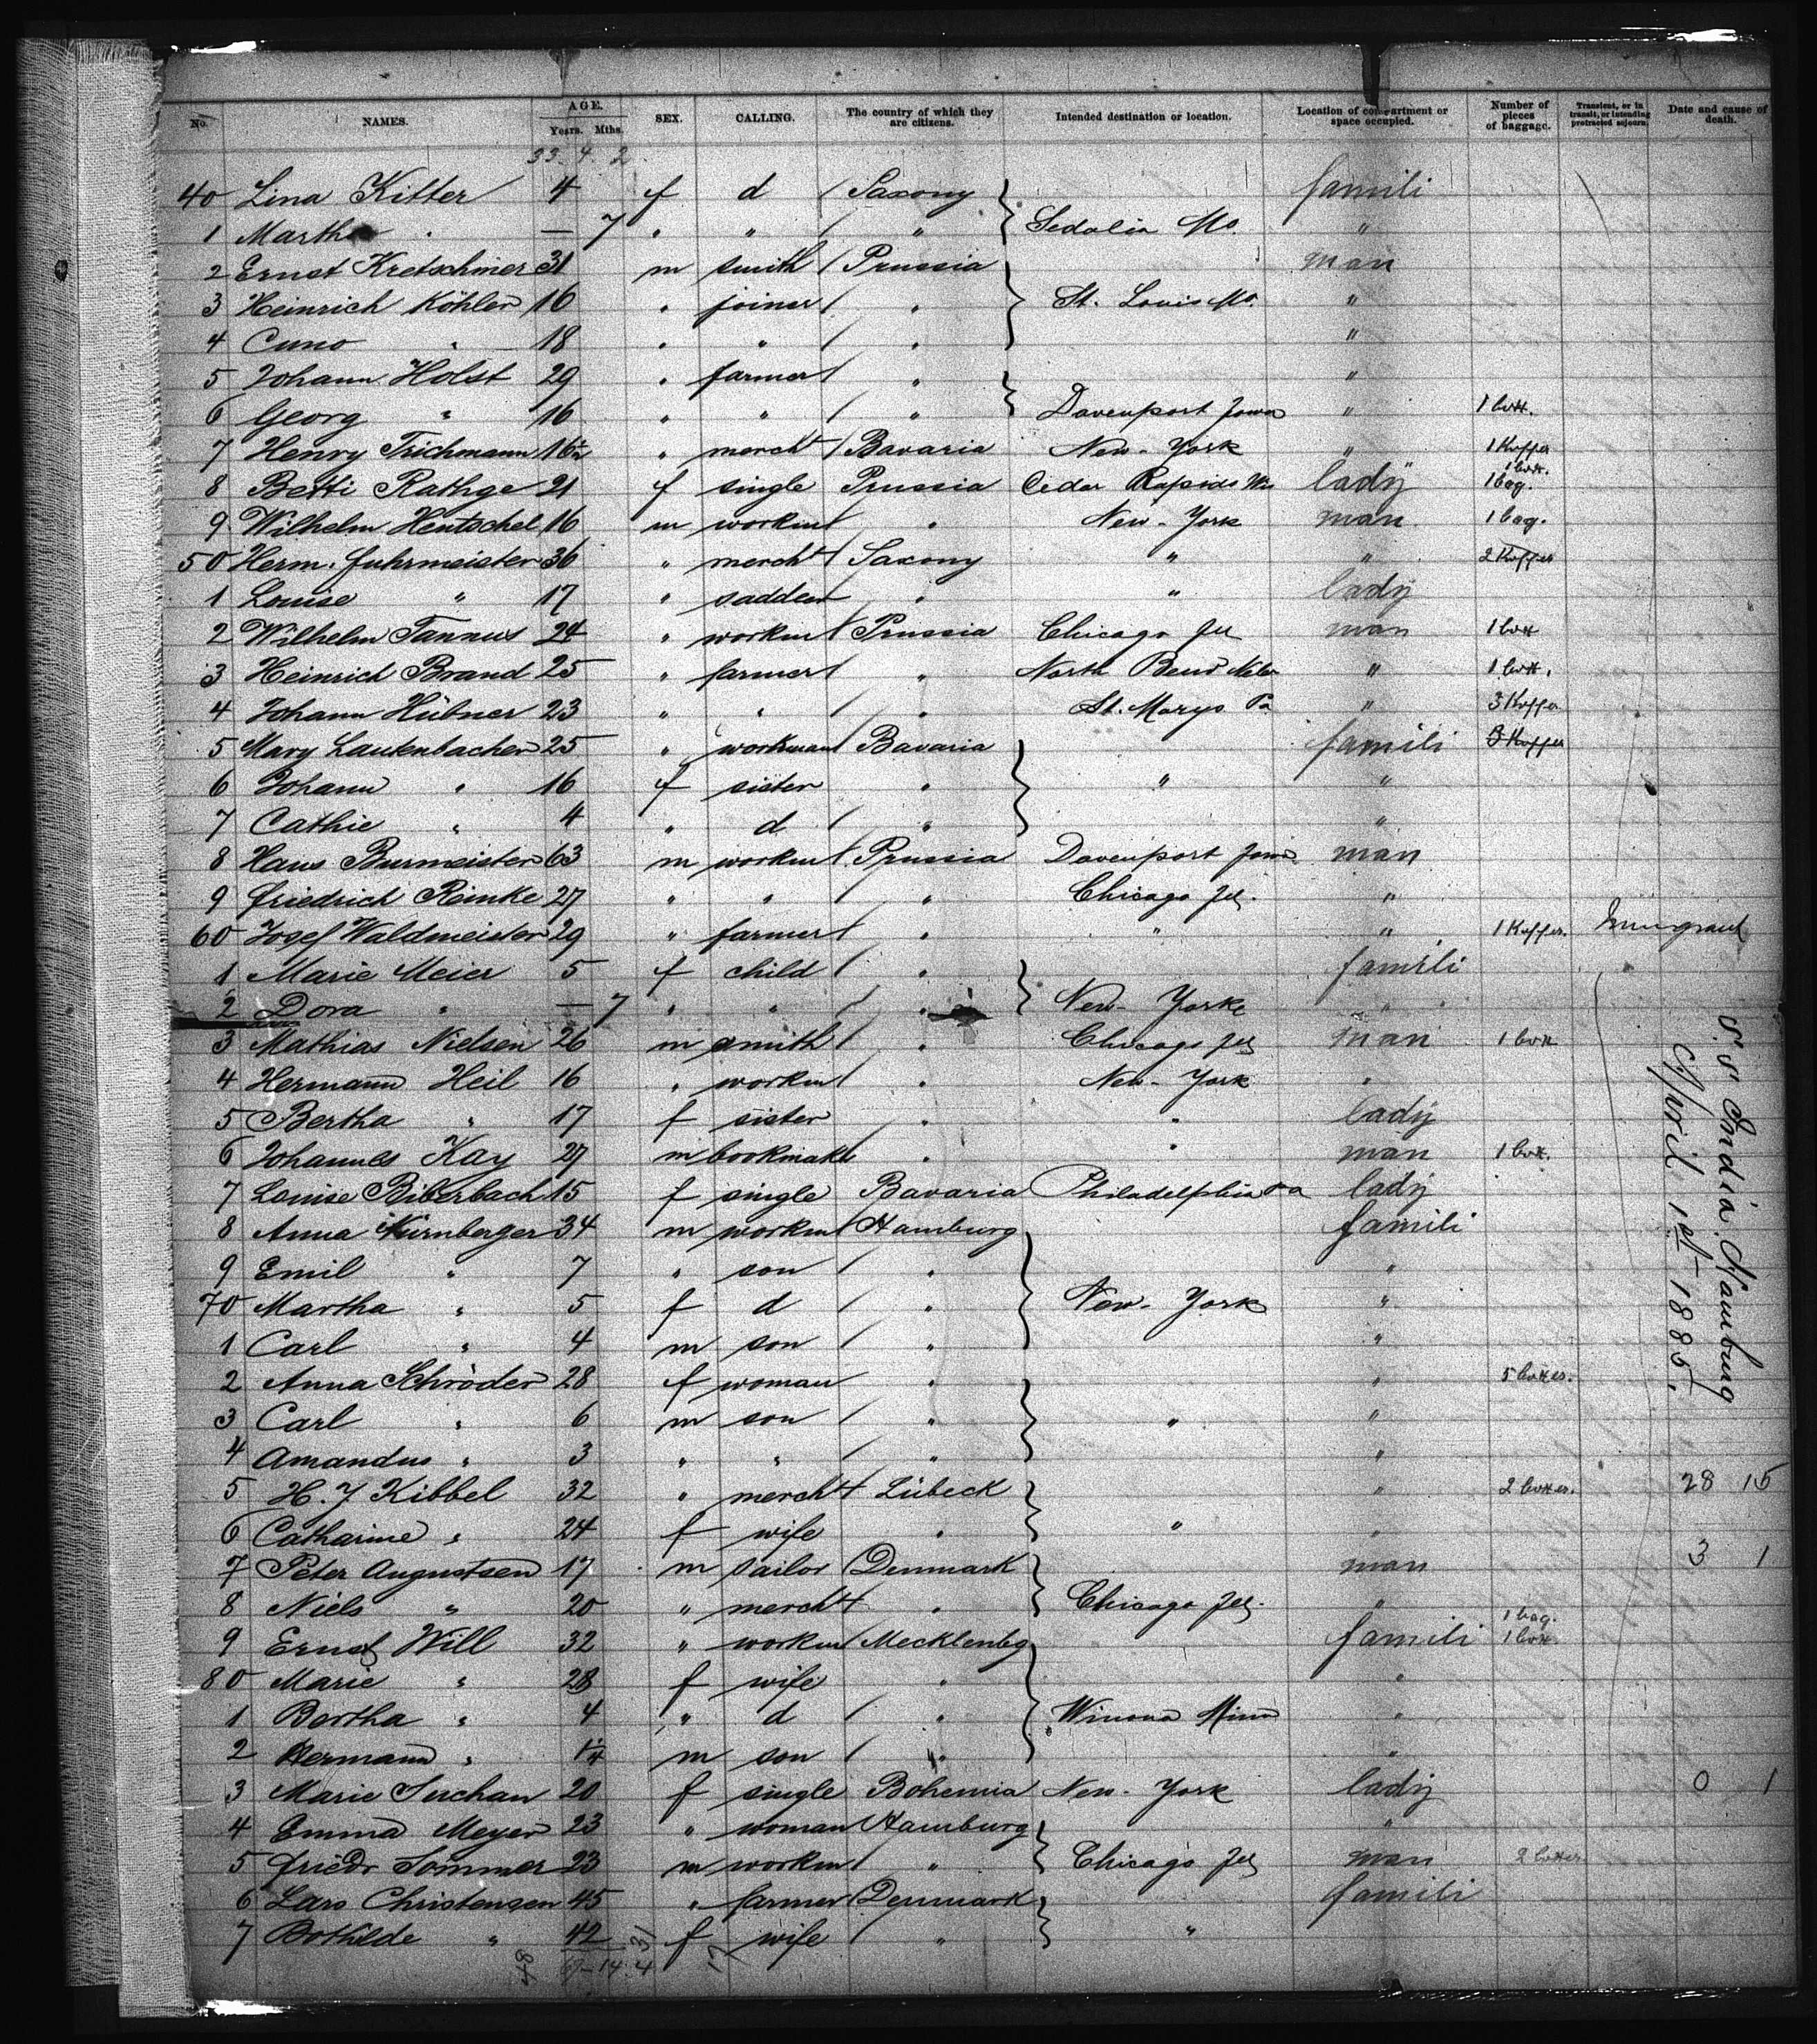 No. NAMES. AGE. Years. Mths. SEX. CALLING. The country of which they are citizens. Intended destination or location. Location of compartment or space occupied. Number of pieces of baggage. Transient, or in transit, or intending protracted sojourn. Date and cause of death.
33. 4. 2.
40 Lina Kitter 4 f d / Saxony famili
1 Martha " — 7 " " / " Sedalia Mo. "
2 Ernst Kretschmer 31 m smith / Prussia man
3 Heinrich Köhler 16 " joiner / " St. Louis Mo. "
4 Cuno " 18 " " / " "
5 Johann Holst 29 " farmer / " "
6 Georg " 16 " " / " Davenport Jowa " 1 box.
7 Henry Trichmann 16½ " mercht / Bavaria New-York " 1 Koffer
8 Betti Rathge 21 f single Prussia Cedar Rapids Wis lady 1 box. 1 bag.
9 Wilhelm Hentschel 16 m workm / " New-York man 1 bag.
50 Herm. Fuhrmeister 36 " mercht Saxony " " 2 Koffer
1 Louise " 17 " saddler " " lady
2 Wilhelm Tannus 24 " workm / Prussia Chicago Jll man 1 box
3 Heinrich Brand 25 " farmer / " North Bend Nebr " 1 box.
4 Johann Hübner 23 " " / " St. Marys Pa " 3 Koffer
5 Mary Lautenbacher 25 " workman Bavaria famili 3 Koffer
6 Johann " 16 f sister " " "
7 Cathie " 4 " d / " "
8 Hans Burmeister 63 m workm / Prussia Davenport Jowa man
9 Friedrich Reinke 27 " " / " Chicago Jll. "
60 Josef Waldmeister 29 " farmer / " " " 1 Koffer. Immigrant
1 Marie Meier 5 f child / " famili
2 Dora " — 7 " " / " New-York "
3 Mathias Nielsen 26 m smith / " Chicago Jll man 1 box
4 Hermann Heil 16 " workm / " New-York "
5 Bertha " 17 f sister " " lady
6 Johannes Kay 27 m bookmake " " man 1 box.
7 Louise Biberbach 15 f single Bavaria Philadelphia Pa lady
8 Anna Nürnberger 34 m workm / Hamburg famili
9 Emil " 7 " son / " "
70 Martha " 5 f d / " New-York "
1 Carl " 4 m son / " "
2 Anna Schröder 28 f woman " " 5 boxes.
3 Carl " 6 m son / " " "
4 Amandus " 3 " " / " "
5 H. J Kibbel 32 " mercht Lübeck " 2 boxes. 28 15
6 Catharine " 24 f wife " " "
7 Peter Augustsen 17 m sailor / Denmark man 3 1
8 Niels " 20 " mercht " Chicago Jll. "
9 Ernst Will 32 " workm / Mecklenbg famili 1 bag. 1 box
80 Marie " 28 f wife " "
1 Bertha " 4 " d / " Winona Minn "
2 Hermann " 1¼ m son / " "
3 Marie Suchan 20 f single Bohemia New-York lady 0 1
4 Emma Meyer 23 " woman Hamburg "
5 Friedr Sommer 23 m workm / " Chicago Jll man 2 boxes
6 Lars Christensen 45 " farmer / Denmark famili
7 Bothilde " 42 f wife " "
S. S. India. Hamburg
April 1st 1885.